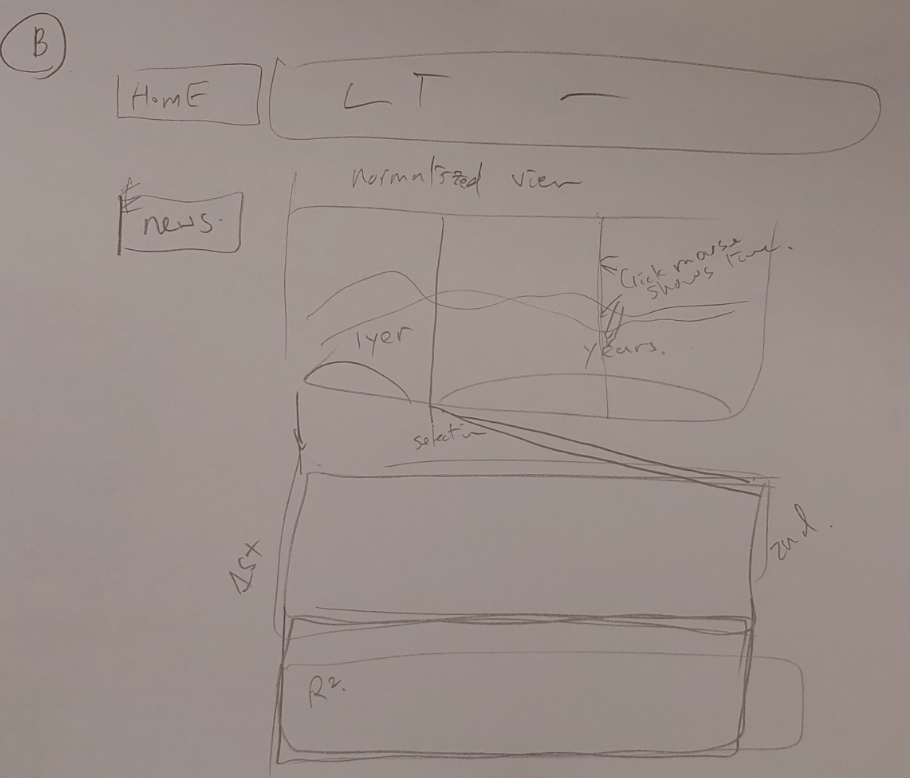 B
HomE
LT —
normalized view
news.
Click mouse
shows time.
1yer
years.
selectin
1st
2nd.
R².